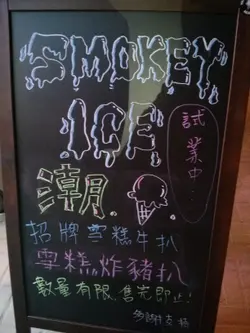 SMOKEY
ICE
試業中
潮
招牌雪糕牛扒
雪糕炸豬扒
數量有限.售完即止!
多謝支持